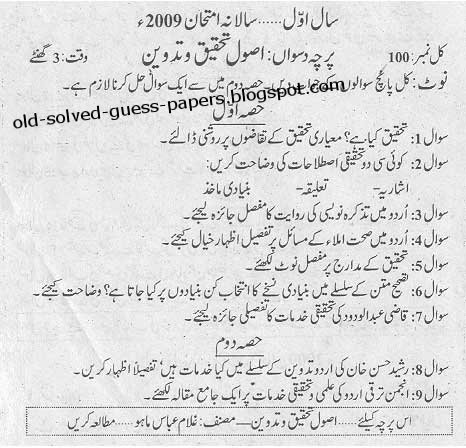 سال اوّل......سالانہ امتحان 2009ء
کل نمبر: 100 پرچہ دسواں: اصول تحقیق و تدوین وقت: 3 گھنٹے
نوٹ: کل پانچ سوالوں کے جواب دیں۔ حصہ دوم میں سے ایک سوال حل کرنا لازم ہے۔
old-solved-guess-papers.blogspot.com
حصہ اوّل
سوال 1: تحقیق کیا ہے؟ معیاری تحقیق کے تقاضوں پر روشنی ڈالئے۔
سوال 2: کوئی سی دو تحقیقی اصطلاحات کی وضاحت کریں:
اشاریہ- تعلیقہ- بنیادی ماخذ
سوال 3: اُردو میں تذکرہ نویسی کی روایت کا مفصل جائزہ لیجئے۔
سوال 4: اُردو میں صحت املاء کے مسائل پر تفصیل اظہار خیال کیجئے۔
سوال 5: تحقیق کے مدارج پر مفصل نوٹ لکھئے۔
سوال 6: تصحیح متن کے سلسلے میں بنیادی نسخے کا انتخاب کن بنیادوں پر کیا جاتا ہے؟ وضاحت کیجئے۔
سوال 7: قاضی عبدالودود کی تحقیقی خدمات کا تفصیلی جائزہ لیجئے۔
حصہ دوم
سوال 8: رشید حسن خان کی اردو تدوین کے سلسلے میں کیا خدمات ہیں، تفصیلاً اظہار کریں۔
سوال 9: انجمن ترقی اردو کی علمی و تحقیقی خدمات پر ایک جامع مقالہ لکھئے۔
اس پرچہ کیلئے......اصول تحقیق و تدوین—مصنف: غلام عباس ماہو......مطالعہ کریں